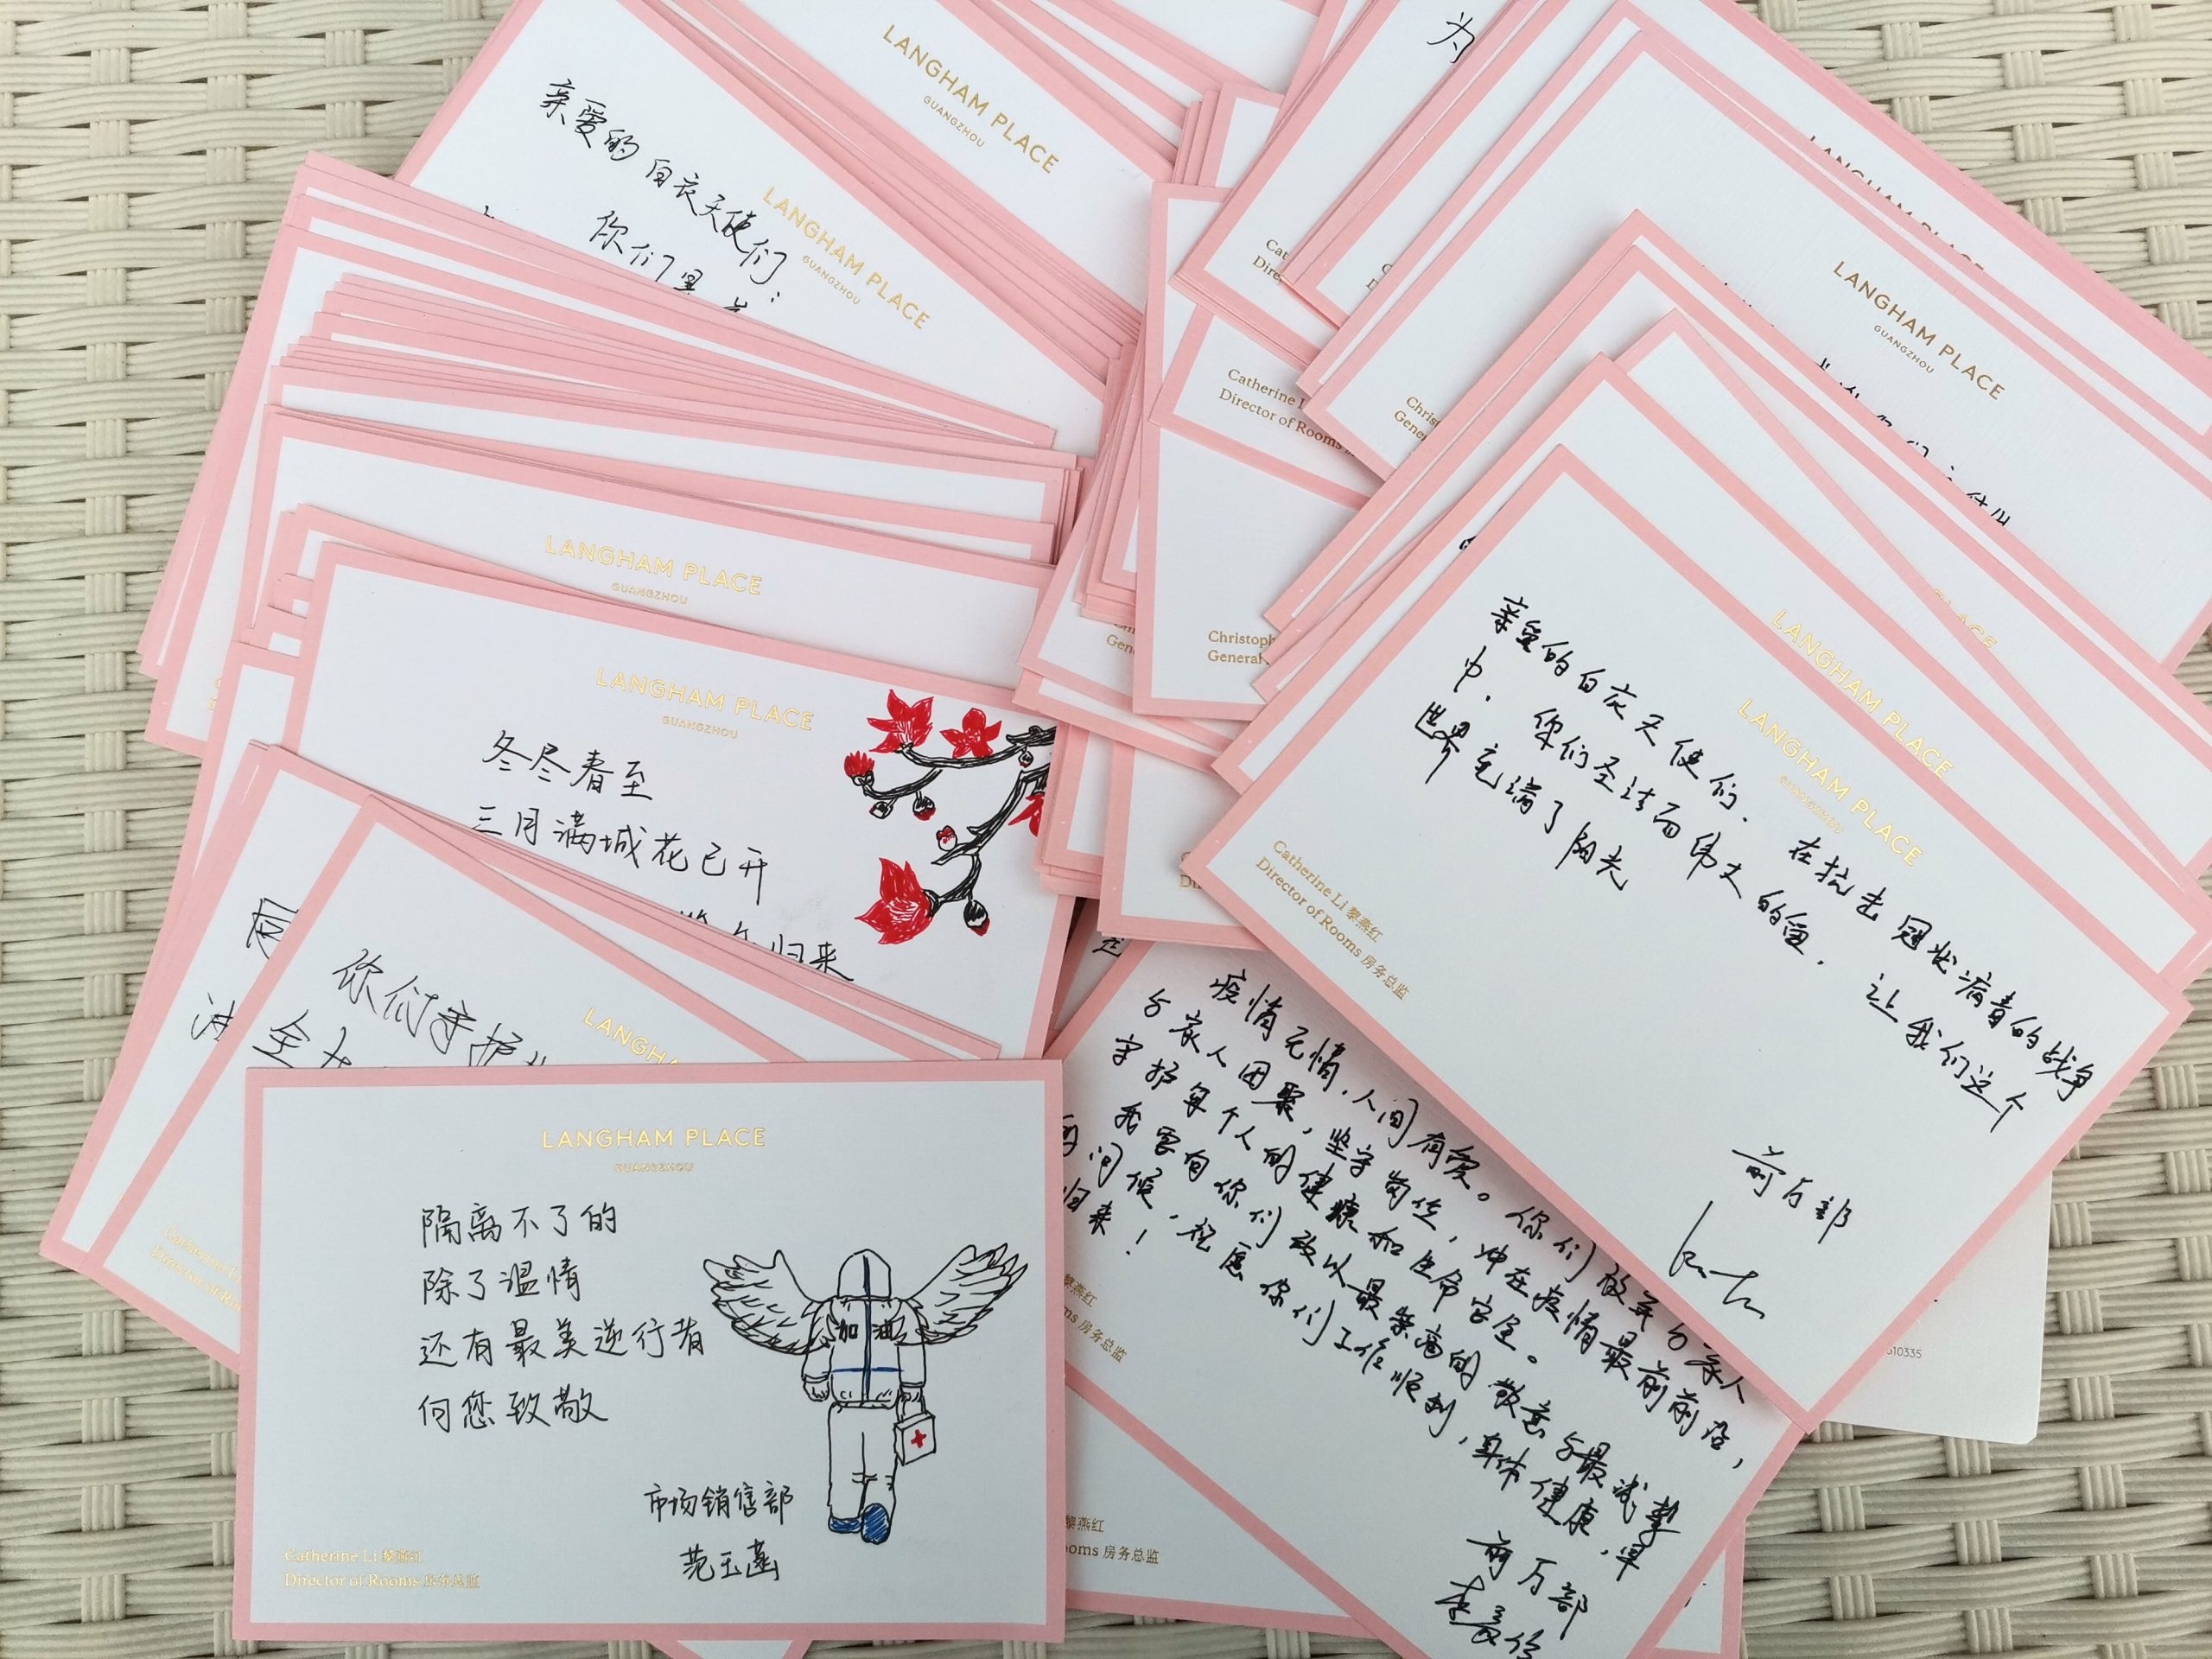 LANGHAM PLACE
GUANGZHOU
亲爱的白衣天使们:
你们是
LANGHAM PLACE
GUANGZHOU
为
LANGHAM PLACE
GUANGZHOU
Catherine
Director of Rooms
Christoph
General
LANGHAM PLACE
GUANGZHOU
LANGHAM PLACE
GUANGZHOU
冬尽春至
三月满城花已开
归来
你们守护
LANGHA
LANGHAM PLACE
GUANGZHOU
隔离不了的
除了温情
还有最美逆行者
向您致敬
加油
市场销售部
范玉菡
Catherine Li 黎燕红
Director of Rooms 房务总监
LANGHAM PLACE
LANGHAM PLACE
GUANGZHOU
亲爱的白衣天使们. 在抗击冠状病毒的战争
中. 你们圣洁而伟大的
让我们这个
世界充满了阳光
前厅部
Catherine Li 黎燕红
Director of Rooms 房务总监
疫情无情,人间有爱。你们放弃与亲人
与家人团聚,坚守岗位,冲在疫情最前前沿,
守护每个人的健康和生命安全。
我要向你们致以最崇高的敬意与最诚挚
问候,祝愿你们工作顺利,身体健康,早
归来!
前厅部
黎燕红
oms 房务总监
黎燕红
ooms 房务总监
510335